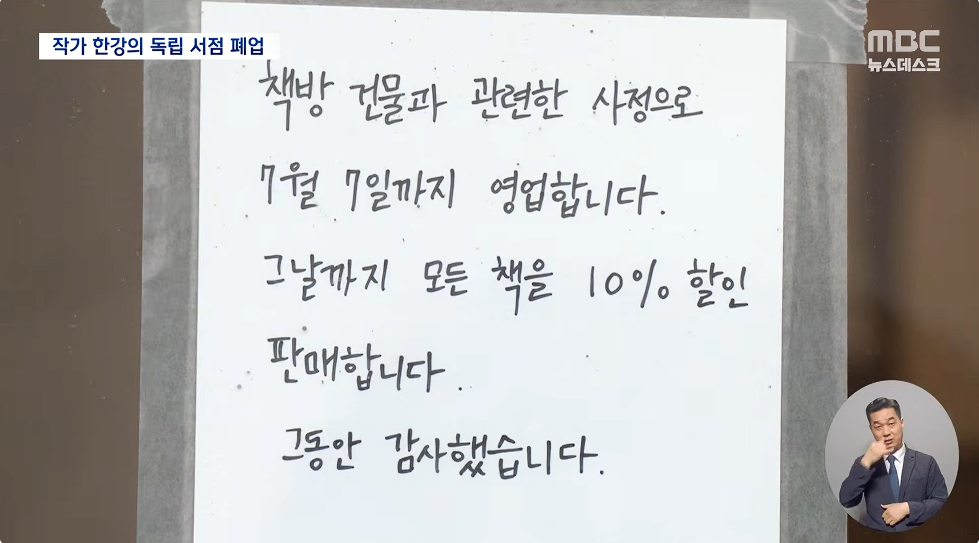 작가 한강의 독립 서점 폐업
MBC
뉴스데스크
책방 건물과 관련한 사정으로
7월 7일까지 영업합니다.
그날까지 모든 책을 10% 할인
판매합니다.
그동안 감사했습니다.